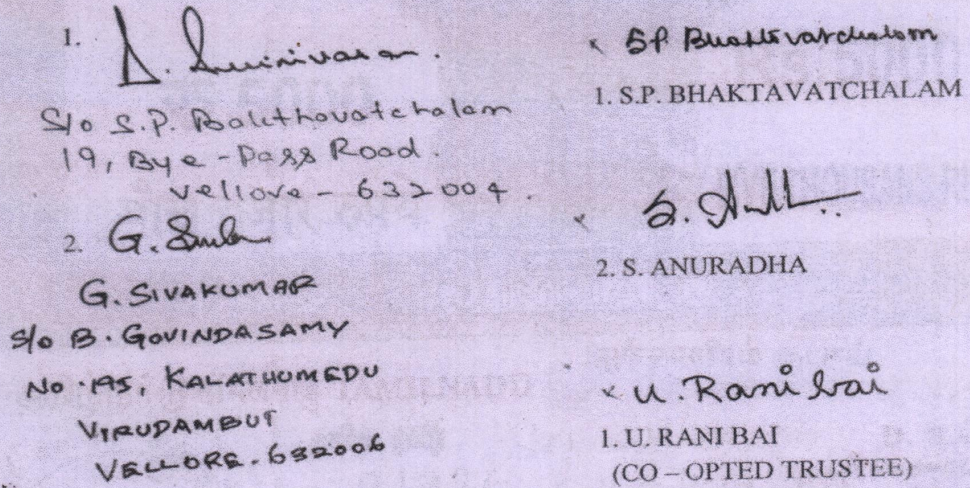 1. S. Srinivasan.
S/o S.P. Bakthavatchalam
19, Bye-Pass Road.
Vellore - 632004.
2. G.
G. SIVAKUMAR
S/o B. GOVINDASAMY
No. 195, KALATHUMEDU
VIRUDAMBUT
VELLORE. 632006
x SP Bhaktavatchalam
1. S.P. BHAKTAVATCHALAM
x S.
2. S. ANURADHA
x U. Rani bai
1. U. RANI BAI
(CO – OPTED TRUSTEE)